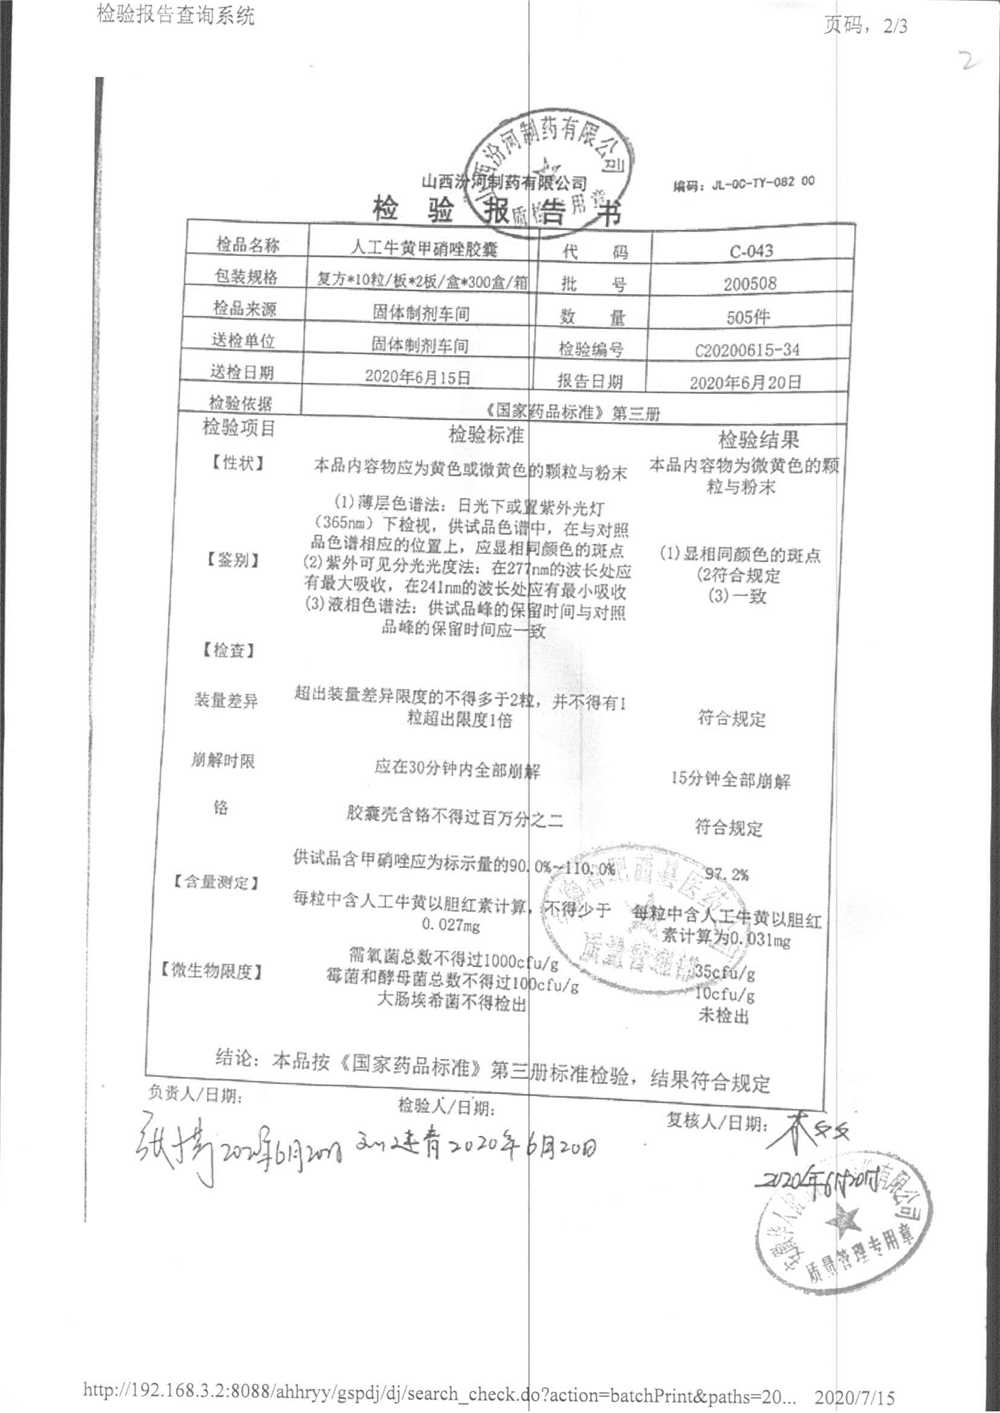 检验报告查询系统
页码，2/3
2
山西汾河制药有限公司
质检专用章
山西汾河制药有限公司
编码：JL-QC-TY-082 00
检 验 报 告 书
检品名称 人工牛黄甲硝唑胶囊 代 码 C-043
包装规格 复方*10粒/板*2板/盒*300盒/箱 批 号 200508
检品来源 固体制剂车间 数 量 505件
送检单位 固体制剂车间 检验编号 C20200615-34
送检日期 2020年6月15日 报告日期 2020年6月20日
检验依据 《国家药品标准》第三册
检验项目 检验标准 检验结果
【性状】 本品内容物应为黄色或微黄色的颗粒与粉末 本品内容物为微黄色的颗
粒与粉末
(1)薄层色谱法：日光下或置紫外光灯
（365nm）下检视，供试品色谱中，在与对照
品色谱相应的位置上，应显相同颜色的斑点
(2)紫外可见分光光度法：在277nm的波长处应
有最大吸收，在241nm的波长处应有最小吸收
(3)液相色谱法：供试品峰的保留时间与对照
品峰的保留时间应一致
【鉴别】
(1)显相同颜色的斑点
(2符合规定
(3)一致
【检查】
装量差异 超出装量差异限度的不得多于2粒，并不得有1
粒超出限度1倍 符合规定
崩解时限 应在30分钟内全部崩解 15分钟全部崩解
铬 胶囊壳含铬不得过百万分之二 符合规定
供试品含甲硝唑应为标示量的90.0%~110.0% 97.2%
【含量测定】
每粒中含人工牛黄以胆红素计算，不得少于
0.027mg
每粒中含人工牛黄以胆红
素计算为0.031mg
【微生物限度】
需氧菌总数不得过1000cfu/g 35cfu/g
霉菌和酵母菌总数不得过100cfu/g 10cfu/g
大肠埃希菌不得检出 未检出
质量管理
结论：本品按《国家药品标准》第三册标准检验，结果符合规定
负责人/日期： 检验人/日期： 复核人/日期：
2020年6月20日 2020年6月20日
2020年6月20日
有限公司
质量管理专用章
http://192.168.3.2:8088/ahhryy/gspdj/dj/search_check.do?action=batchPrint&paths=20... 2020/7/15